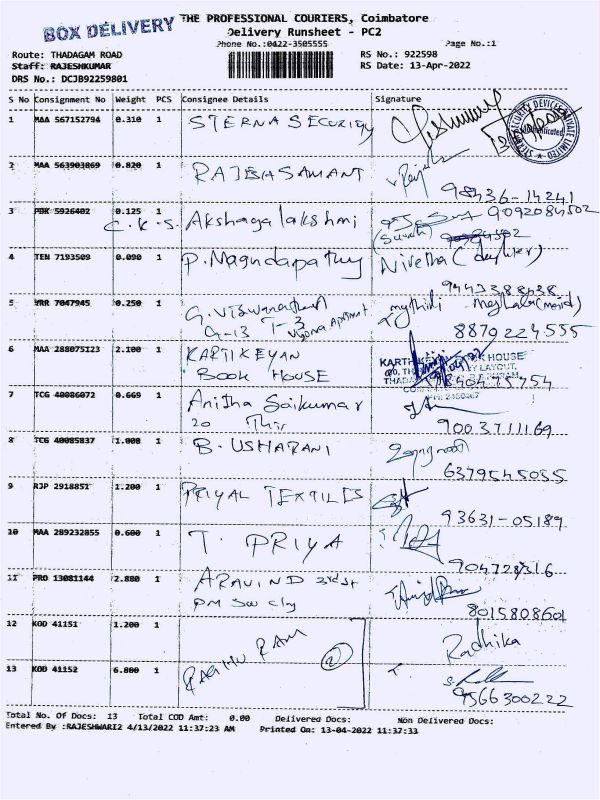 BOX DELIVERY
THE PROFESSIONAL COURIERS, Coimbatore
Delivery Runsheet - PC2
Phone No.:0422-3505555
Page No.:1
Route: THADAGAM ROAD
RS No.: 922598
Staff: RAJESHKUMAR
RS Date: 13-Apr-2022
DRS No.: DCJB92259801
S No Consignment No Weight PCS Consignee Details Signature
1 MAA 567152794 0.310 1 STERNA SECURITY
2 MAA 563903869 0.820 1 RAJESH SAMANT
98436-14241
3 PDK 5926402 0.125 1 C.K.S. Akshaga lakshmi 9092084502
(Suresh)
4 TEN 7193509 0.090 1 P. Magudapathy Nivetha (daughter)
9443388638
5 VRR 7047945 0.250 1 G. Viswanathan
G-13 T-3 Vijaya Apartment
mythili Meghala (maid)
8870224555
6 MAA 288075123 2.100 1 KARTIKEYAN
BOOK HOUSE
KARTHIKEYAN BOOK HOUSE
9840475754
7 TCG 40086072 0.669 1 Anitha Saikumar
20
9003711169
8 TCG 40085837 1.000 1 B. USHARANI
6379545055
9 RJP 2918851 1.200 1 PRIYAL TEXTILES
93631-05189
10 MAA 289232855 0.600 1 T. PRIYA
904728316
11 PRO 13081144 2.880 1 ARAVIND
8015808601
12 KOD 41151 1.200 1 Radhika
RAGHU RAM
2
13 KOD 41152 6.800 1
9566300222
Total No. Of Docs: 13 Total COD Amt: 0.00 Delivered Docs: Non Delivered Docs:
Entered By :RAJESHWARI2 4/13/2022 11:37:23 AM Printed On: 13-04-2022 11:37:33